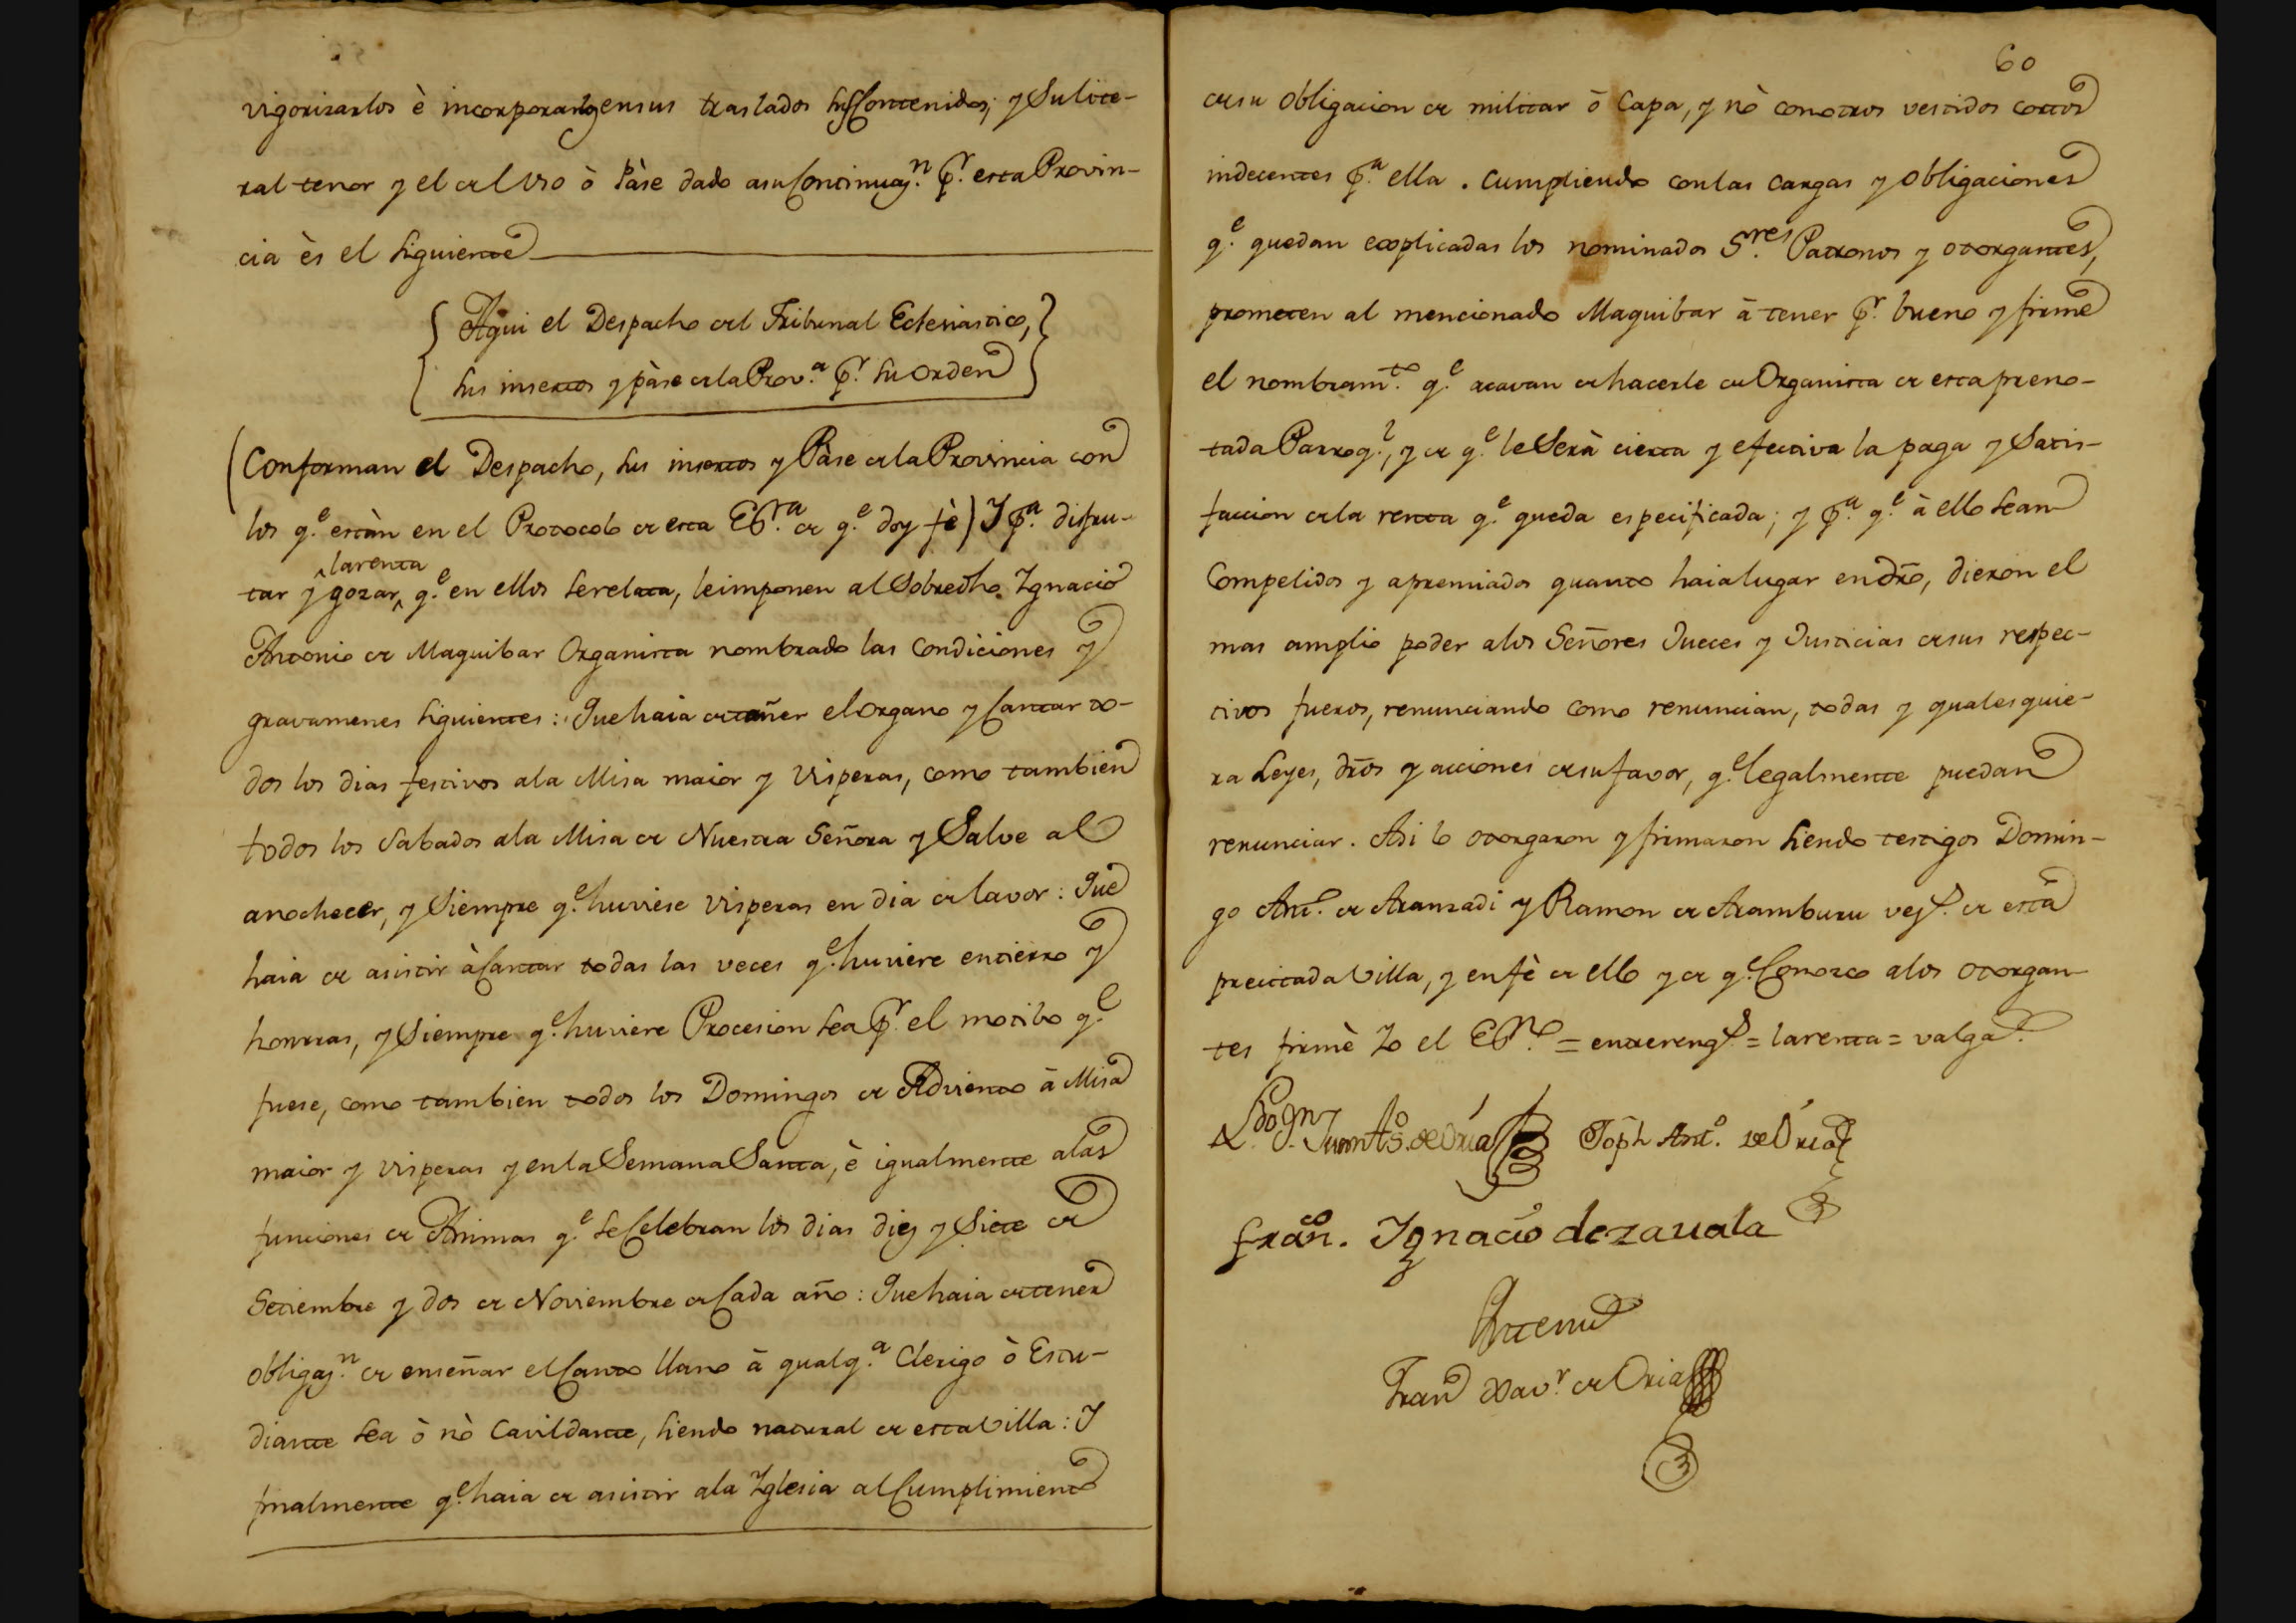 vigorizarlos è incorporarlos en sus traslados sus Contenidos; y Su lite-
ral tenor y el del Uso ò Pàse dado a su Continuaz.n p.r esta Provin-
cia ès el siguiente
Aqui el Despacho del Tribunal Eclesiastico,
sus insertos y pàse de la Prov.a p.r su Orden
(Conforman el Despacho, sus insertos y Pàse de la Provincia con
los q.e estàn en el Protocolo de esta Es.ra de q.e doy fè) Y p.a disfru-
la renta
tar y gozar, q.e en ellos se relata, le imponen al Sobredho. Ygnacio
Antonio de Maquibar Organista nombrado las Condiciones y
gravamenes siguientes: Que haia de tañer el Organo y Cantar to-
dos los dias festivos a la Misa maior y Visperas, como tambien
todos los Sabados a la Misa de Nuestra Señora y Salve al
anochecer, y Siempre q.e huviese Visperas en dia de lavor: Que
haia de asistir à Cantar todas las veces q.e huviere entierro y
honrras, y Siempre q.e huviere Procesion sea p.r el motibo q.e
fuese, como tambien todos los Domingos de Adviento â Misa
maior y visperas y en la Semana Santa, è igualmente a las
funciones de Animas q.e se Celebran los dias diez y Siete de
Setiembre y dos de Noviembre de Cada año: Que haia de tener
obligaz.n de enseñar el Canto llano â qualq.a Clerigo ò Estu-
diante sea ò nò Cavildante, siendo natural de esta Villa: Y
finalmente q.e haia de asistir a la Yglesia al Cumplimiento
60
de su obligacion de militar ò Capa, y nò con otros vestidos cortos
indecentes p.a ella. Cumpliendo con las Cargas y obligaciones
q.e quedan explicadas los nominados S.res Patronos y otorgantes,
prometen al mencionado Maquibar â tener p.r bueno y firme
el nombram.to q.e acavan de hacerle de Organista de esta preno-
tada Parroq.l, y de q.e le Serà cierta y efectiva la paga y Satis-
faccion de la renta q.e queda especificada; y p.a q.e â ello sean
Compelidos y apremiados quanto haia lugar en dro, dieron el
mas amplio poder a los Señores Jueces y Justicias de sus respec-
tivos fueros, renunciando como renuncian, todas y qualesquie-
ra Leyes, dros y acciones de su favor, q.e legalmente puedan
renunciar. Asi lo otorgaron y firmaron siendo testigos Domin-
go Ant.o de Aranzadi y Ramon de Aramburu vez.s de esta
precitada Villa, y en fè de ello y de q.e Conozco a los otorgan-
tes firmè Yo el Es.no = entrereng.s = la renta = valga.
L.do D.n Juan Ant.o de Oria Joph Ant.o de Oria
Fran.co Ygnacio de zauala
Antemi
Fran.co Xav.r de Oria